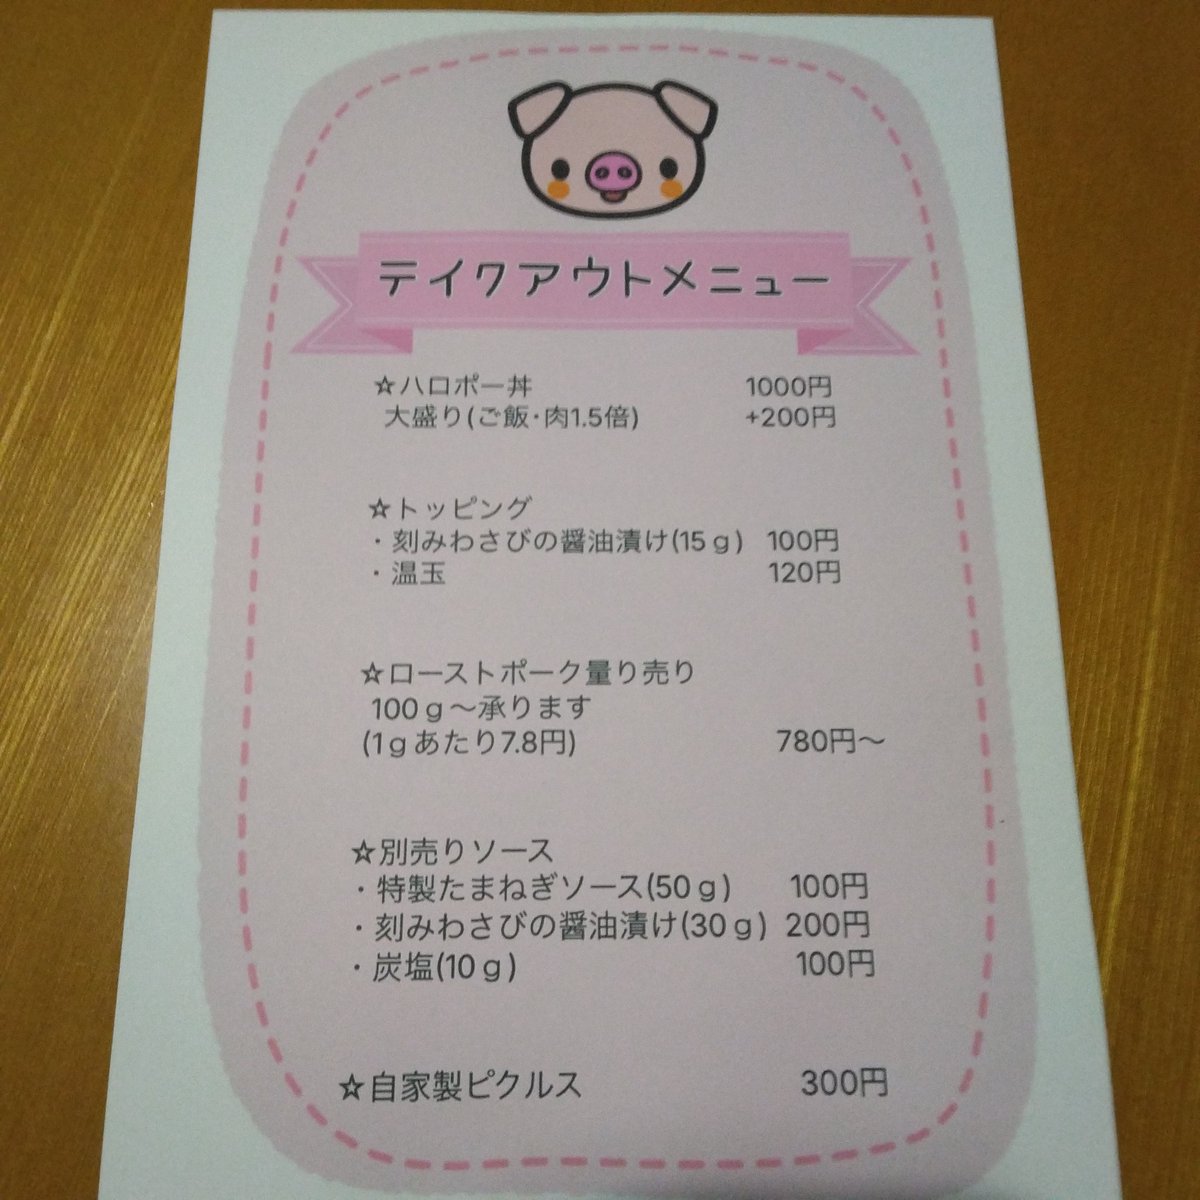 テイクアウトメニュー
☆ハロポー丼 1000円
大盛り(ご飯･肉1.5倍) +200円
☆トッピング
・刻みわさびの醤油漬け(15ｇ) 100円
・温玉 120円
☆ローストポーク量り売り
100ｇ〜承ります
(1ｇあたり7.8円) 780円〜
☆別売りソース
・特製たまねぎソース(50ｇ) 100円
・刻みわさびの醤油漬け(30ｇ) 200円
・炭塩(10ｇ) 100円
☆自家製ピクルス 300円